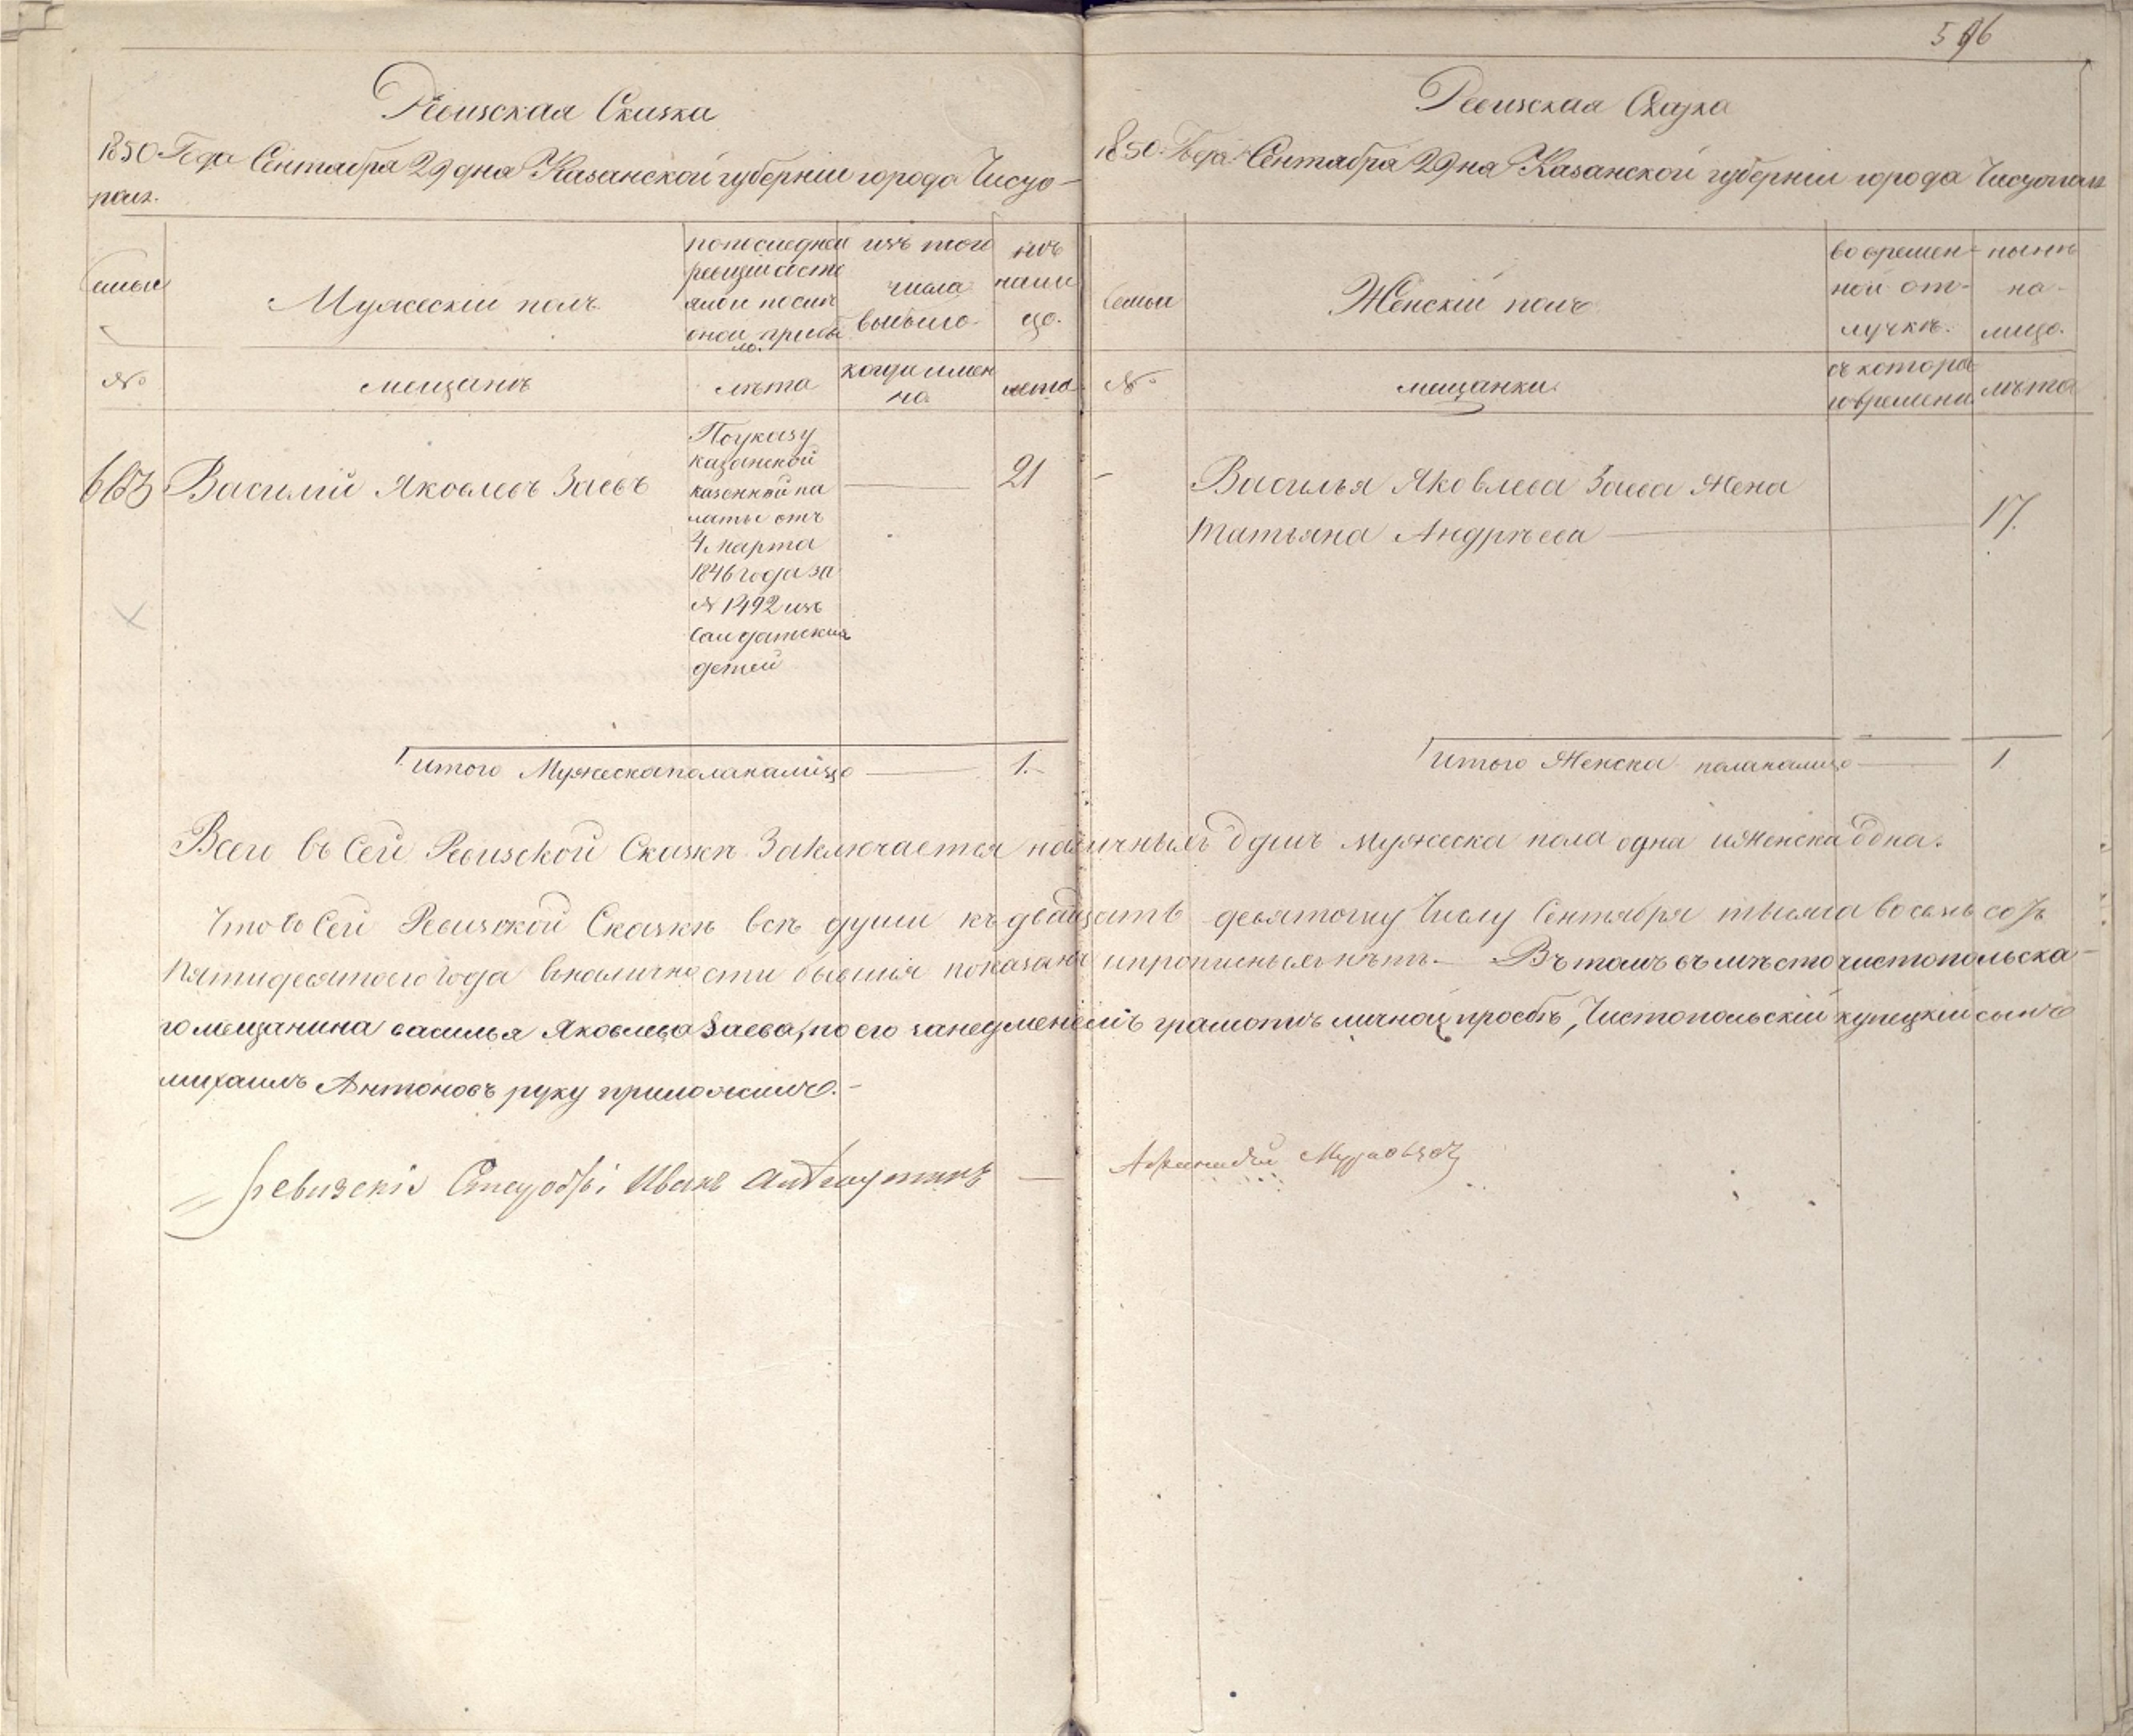 596
Ревизская Сказка
1850 Года Сентября 29 дня Казанской губерніи города Чисто-
поля.
Семьи
Мужескій полъ.
по последней
ревизіи состо
яло и после
оной прибы
ло.
изъ того
числа
выбыло.
нъ
нали
цо.
№
мещанъ
лѣта
когда имен
но.
лета
663
Василий Яковлевъ Заевъ
По указу
казанской
казенной па
латы отъ
4 марта
1846 года за
№ 1492 изъ
Салдатскихъ
детей
21
Итого Мужеска пола налицо 1.
Ревизская Сказка
1850. Года Сентября 29 дня Казанской губерніи города Чистополя
Семьи
Женскій полъ
во времен-
ной от-
лучкѣ.
нынѣ
на-
лицо.
№
мещанки
съ котора
го времени
лѣта
Василья Яковлева Заева Жена
Татьяна Андрѣева 17.
Итого Женска пола налицо 1
Всего въ Сей Ревизской Сказкѣ Заключается наличныхъ душъ мужеска пола одна и женска одна.
Что въ Сей Ревизской Сказкѣ всѣ души къ двадцать девятому Числу Сентября тысяча восемь сотъ
Пятидесятого года в наличности бывшія показаны и прописныхъ нѣтъ.— Въ томъ въ мѣсто чистопольска-
го мещанина василья Яковлева Заева, по его за неумѣніемъ грамотѣ личной просьбѣ, Чистопольскій купецкій сынъ
михаилъ Антоновъ руку приложилъ.—
Ревизскій Иванъ